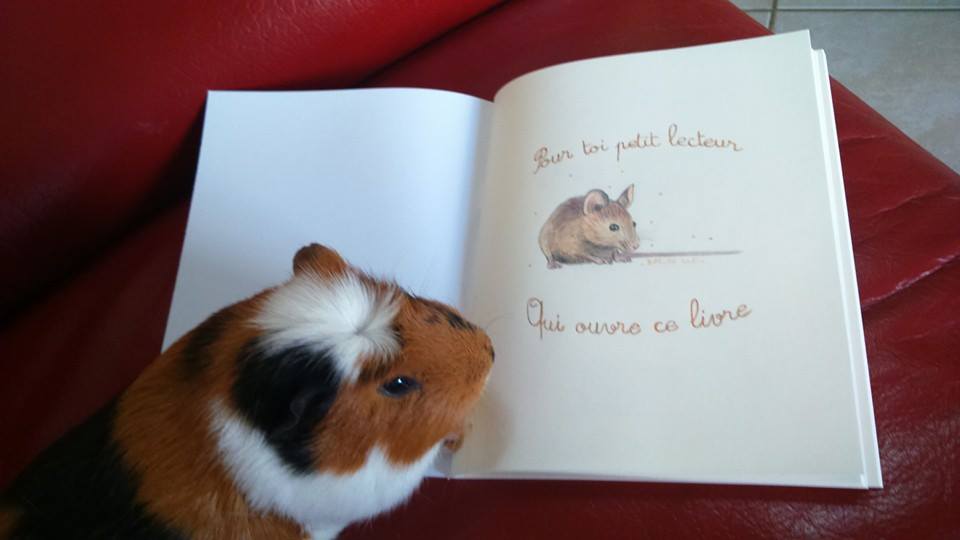 Pour toi petit lecteur
Qui ouvre ce livre